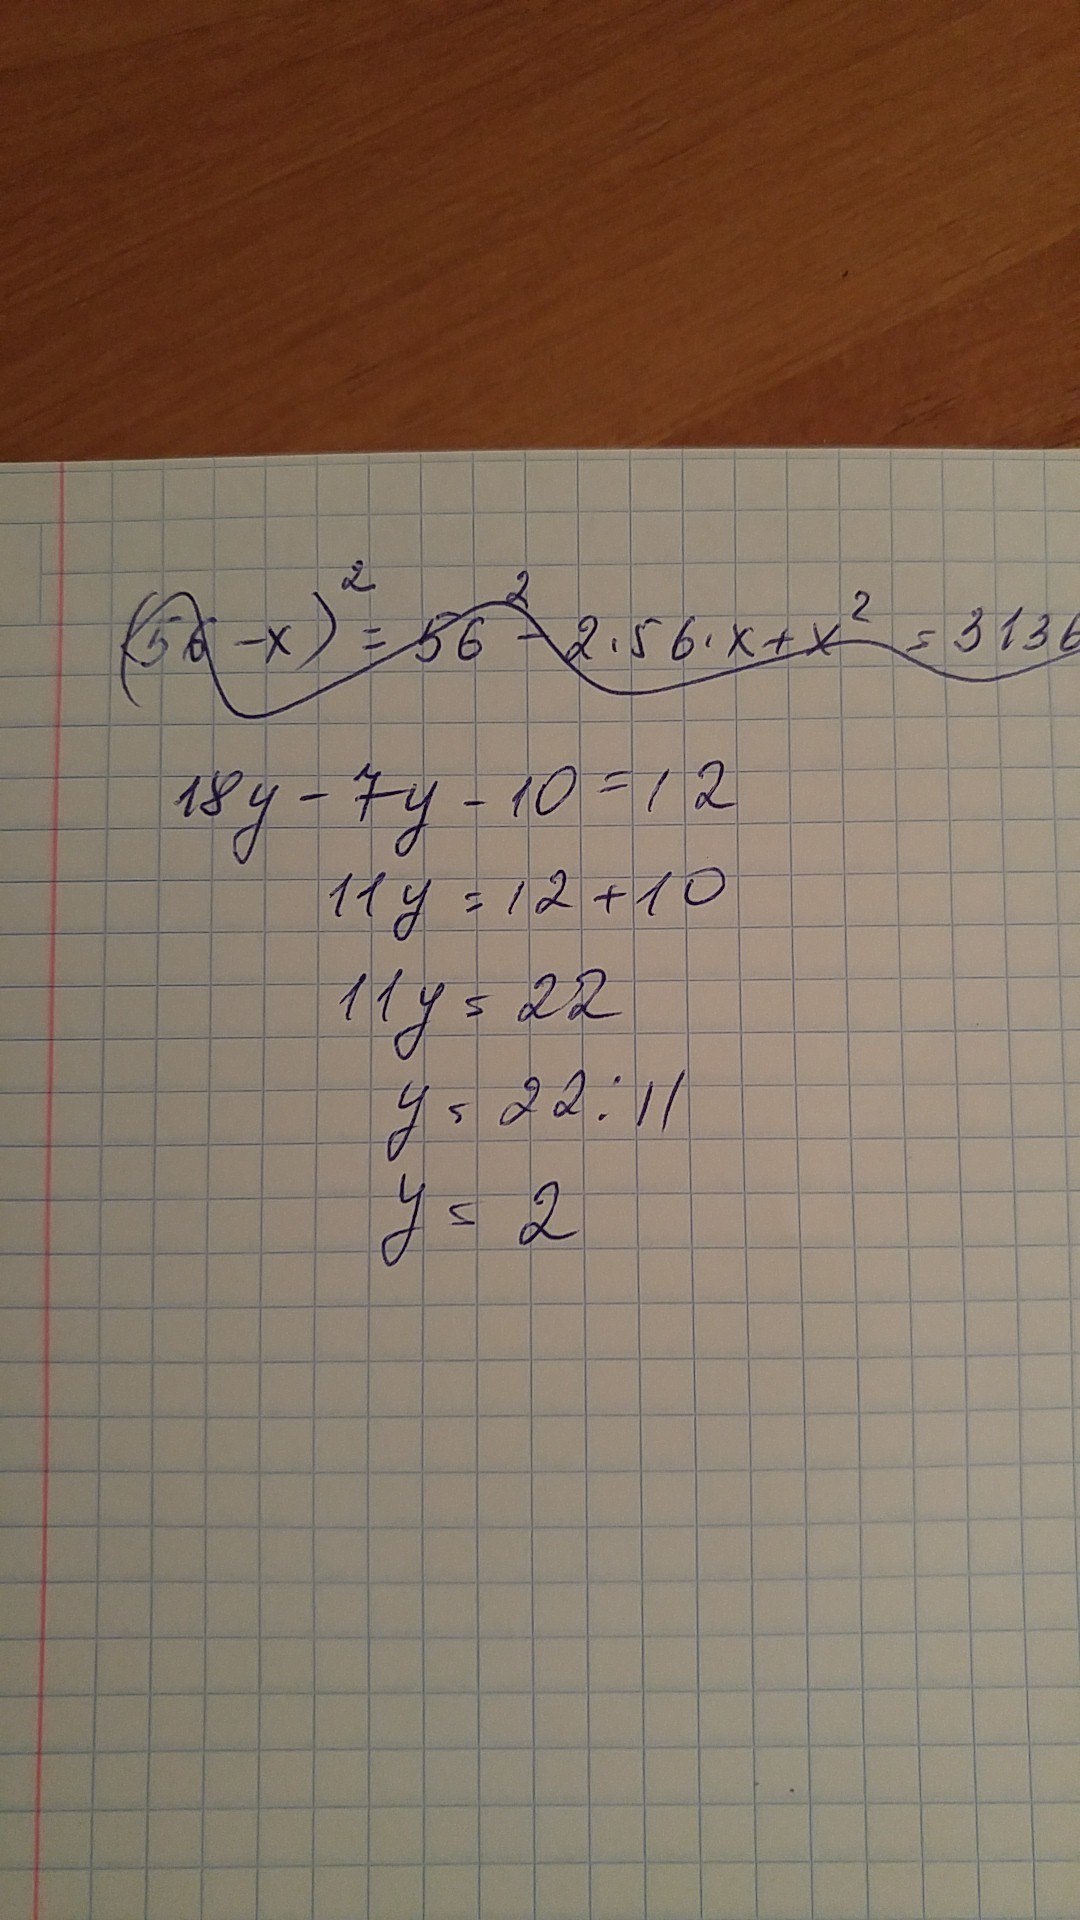 (56 - x)² = 56² - 2·56·x + x² = 3136
18y - 7y - 10 = 12
11y = 12 + 10
11y = 22
y = 22 : 11
y = 2